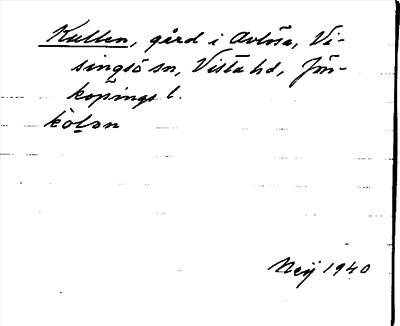 Kullen, gård i Avlösa, Vi-
singsö sn, Vista hd, Jön-
köpings l.
kölan
Neij 1940